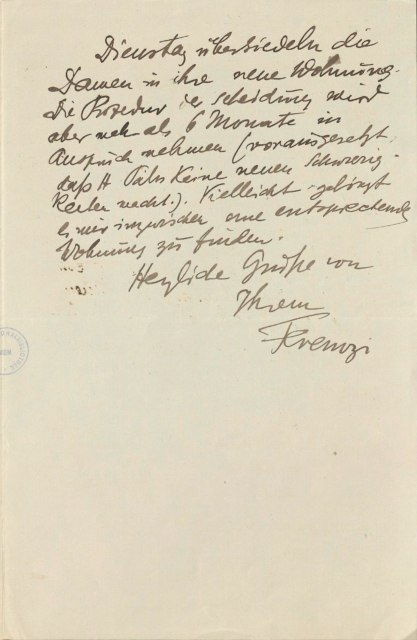 Dienstag übersiedeln die
Damen in ihre neue Wohnung.
Die Prozedur der Scheidung wird
aber mehr als 6 Monate in
Anspruch nehmen (vorausgesetzt
daß H Pálos keine neuen Schwierig-
keiten macht.). Vielleicht gelingt
es mir inzwischen eine entsprechende
Wohnung zu finden.
Herzliche Grüße von
Ihrem
Ferenczi